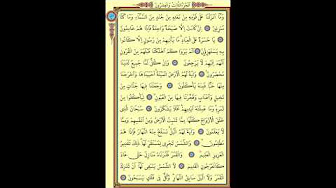 الجزء الثالث والعشرون
وَمَا أَنزَلْنَا عَلَىٰ قَوْمِهِ مِن بَعْدِهِ مِن جُندٍ مِّنَ السَّمَاءِ وَمَا كُنَّا
مُنزِلِينَ إِن كَانَتْ إِلَّا صَيْحَةً وَاحِدَةً فَإِذَا هُمْ خَامِدُونَ
يَا حَسْرَةً عَلَى الْعِبَادِ مَا يَأْتِيهِم مِّن رَّسُولٍ إِلَّا كَانُوا
بِهِ يَسْتَهْزِئُونَ أَلَمْ يَرَوْا كَمْ أَهْلَكْنَا قَبْلَهُم مِّنَ الْقُرُونِ
أَنَّهُمْ إِلَيْهِمْ لَا يَرْجِعُونَ وَإِن كُلٌّ لَّمَّا جَمِيعٌ لَّدَيْنَا
مُحْضَرُونَ وَآيَةٌ لَّهُمُ الْأَرْضُ الْمَيْتَةُ أَحْيَيْنَاهَا وَأَخْرَجْنَا
مِنْهَا حَبًّا فَمِنْهُ يَأْكُلُونَ وَجَعَلْنَا فِيهَا جَنَّاتٍ مِّن
نَّخِيلٍ وَأَعْنَابٍ وَفَجَّرْنَا فِيهَا مِنَ الْعُيُونِ لِيَأْكُلُوا مِن
ثَمَرِهِ وَمَا عَمِلَتْهُ أَيْدِيهِمْ أَفَلَا يَشْكُرُونَ سُبْحَانَ الَّذِي
خَلَقَ الْأَزْوَاجَ كُلَّهَا مِمَّا تُنبِتُ الْأَرْضُ وَمِنْ أَنفُسِهِمْ وَمِمَّا
لَا يَعْلَمُونَ وَآيَةٌ لَّهُمُ اللَّيْلُ نَسْلَخُ مِنْهُ النَّهَارَ فَإِذَا هُم
مُّظْلِمُونَ وَالشَّمْسُ تَجْرِي لِمُسْتَقَرٍّ لَّهَا ذَٰلِكَ تَقْدِيرُ
الْعَزِيزِ الْعَلِيمِ وَالْقَمَرَ قَدَّرْنَاهُ مَنَازِلَ حَتَّىٰ عَادَ
كَالْعُرْجُونِ الْقَدِيمِ لَا الشَّمْسُ يَنبَغِي لَهَا أَن تُدْرِكَ
الْقَمَرَ وَلَا اللَّيْلُ سَابِقُ النَّهَارِ وَكُلٌّ فِي فَلَكٍ يَسْبَحُونَ